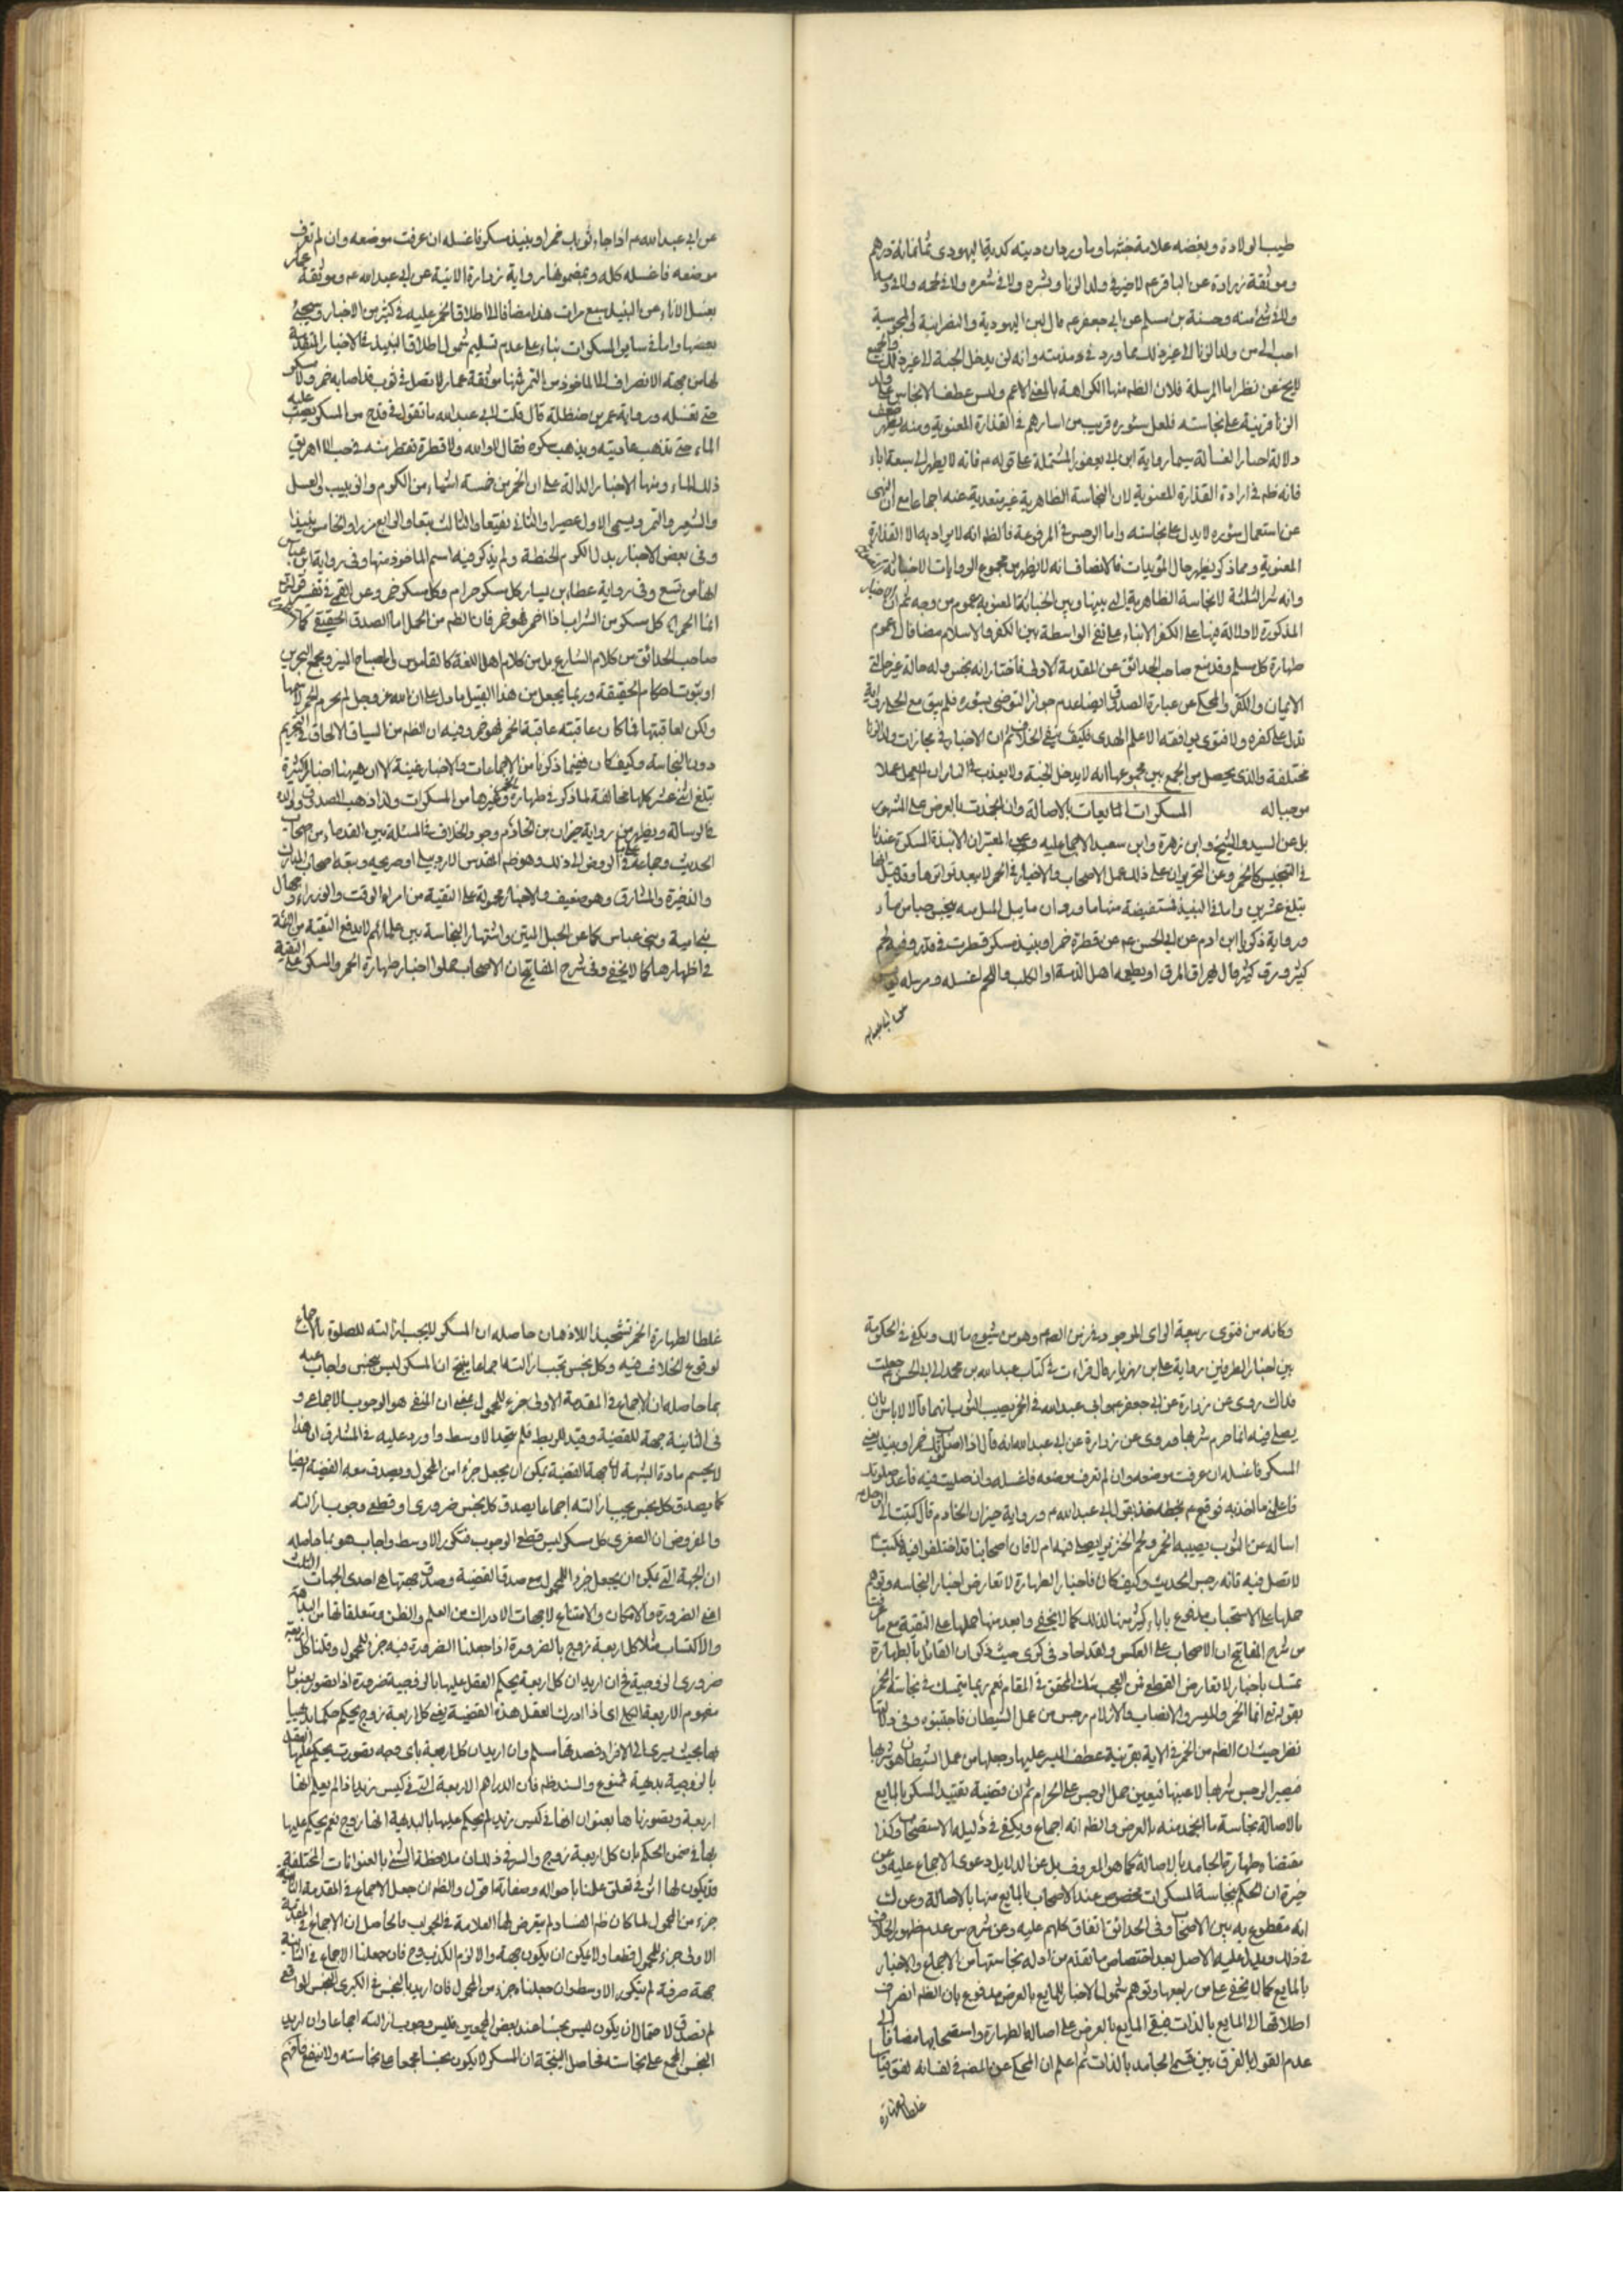 طيب الولادة وبغضه علامة خبثها وما ورد ان ديته كدية اليهودى ثمانمائة درهم
وموثقة زرارة عن الباقر عم لا خير فى ولد الزنا وبشره ولا فى شعره ولا فى لحمه ولا فى دمه
ولا فى شئ منه وحسنة بن مسلم عن ابى جعفر عم قال لبن اليهودية والنصرانية والمجوسية
احب الى من ولد الزنا الى غير ذلك مما ورد فى مذمته وانه لن يدخل الجنة الى غير ذلك والجميع
لا يخ عن نظر اما المرسلة فلان الظم منها الكراهة بالمعنى الاعم وليس عطف الانجاس على ولد
الزنا قرينة على نجاسته فلعل سئوره قريب من اسارهم فى القذارة المعنوية ومنه يظهر ضعف
دلالة اخبار الغسالة سيما رواية ابن ابى يعفور المشتملة على قوله م فانه لا يطهر الى سبعة اباء
فانه ظم فى ارادة القذارة المعنوية لان النجاسة الظاهرية غير متعدية عنه اجماعا مع ان النهى
عن استعمال سئوره لا يدل على نجاسته واما الرجس فى المرفوعة فالظم انه لا يراد به الا القذارة
المعنوية ومما ذكر يظهر حال المؤيدات فالانصاف انه لا يظهر من مجموع الروايات الا خباثته
وانه شر الثلثة لا النجاسة الظاهرية التى بينها وبين الخباثة المعنوية عموم من وجه ثم ان الاخبار
المذكورة لا دلالة فيها على الكفر الا بناء على نفى الواسطة بين الكفر والاسلام مضافا الى عموم
طهارة كل مسلم وقد منع صاحب الحدائق عن المقدمة الاولى فاختار انه نجس وله حالة غير حالتى
الايمان والكفر والمحكى عن عبارة الصدوق ايضا عدم جواز التوضى بسؤره فلم يبق مع الحلى رواية
تدل على كفره ولا فتوى يوافقه الا علم الهدى فكيف ينفى الخلاف ثم ان الاخبار فى مجازات ولد الزنا
مختلفة والذى يحصل من الجمع بين مجموعها انه لا يدخل الجنة ولا يعذب فى النار ان لم يعمل عملا
موجبا له المسكرات المايعات بالاصالة وان انجمدت بالعرض على المشهور
بل عن السيد والشيخ وابن زهرة وابى سعيد الاجماع عليه وعن المعتبر ان الانبذة المسكرة عندنا
فى التنجيس كالخمر وعن التحرير ان على ذلك عمل الاصحاب والاخبار فى الخمر لا يبعد تواترها وقد قيل انها
يبلغ عشرين واما فى النبيذ فمستفيضة منها ما ورد ان ما يبل الميل منه ينجس حبا من ماء
ورواية زكريا ابن ادم عن ابى الحسن عم عن قطرة خمر او نبيذ مسكر قطرت فى قدر وفيه لحم
كثير ومرق كثير قال يهراق المرق او يطعمه اهل الذمة او الكلب واللحم اغسله ومرسلة يونس
عن ابى عبدالله
عن ابى عبد الله م اذا جاء ثوبك خمر او نبيذ مسكر فاغسله ان عرفت موضعه وان لم تعرف
موضعه فاغسله كله وبمضمونها رواية زرارة الاتية عن ابى عبد الله عم وموثقة عمار
بغسل الاناء عن النبيذ سبع مرات هذا مضافا الى اطلاق الخمر عليه فى كثير من الاخبار وسيجئ
بعضها واما فى ساير المسكرات بناء على عدم تسليم شمول اطلاق النبيذ فى الاخبار المتقدمة
لها من جهة الانصراف الى الماخوذ من التمر فمنها موثقة عمار لا تصل فى ثوب قد اصابه خمر ولا مسكر
حتى تغسله ورواية عمر بن حنظلة قال قلت لابى عبد الله ما تقول فى قدح من المسكر يصب عليه
الماء حتى تذهب عاديته ويذهب سكره فقال لا والله ولا قطرة تقطر منه فى حب الا اهريق
ذلك الماء ومنها الاخبار الدالة على ان الخمر من خمسة اشياء من الكروم والزبيب والعسل
والشعير والتمر ويسمى الاول عصيرا والثانى نقيعا والثالث بتعا والرابع مزرا والخامس نبيذا
وفى بعض الاخبار بدل الكروم الحنطة ولم يذكر فيه اسم الماخوذ منها وفى رواية ابن عباس
انها من تسع وفى رواية عطاء بن يسار كل مسكر حرام وكل مسكر خمر وعن القمى فى تفسير قوله تع
انما الخمر اى كل مسكر من الشراب اذا اخمر فهو خمر فان الظم من الحمل اما الصدق الحقيقى كما
صاحب الحدائق من كلام الشارع بل من كلام اهل اللغة كالقاموس والمصباح المنير ومجمع البحرين
او ثبوت احكام الحقيقة وربما يجعل من هذا القبيل ما دل على ان الله عز وجل لم يحرم الخمر لاسمها
ولكن لعاقبتها فما كان عاقبته عاقبة الخمر فهو خمر وفيه ان الظم من السياق الالحاق فى التحريم
دون النجاسة وكيف كان ففيما ذكرنا من الاجماعات والاخبار غنية الا ان هيهنا اخبارا كثيرة
تبلغ اثنى عشر كلها مخالفة لما ذكر فى طهارة الخمر وغيرها من المسكرات ولذا ذهب الصدوق ووالده
فى الرسالة ويظهر من رواية خيران بن الخادم وجود الخلاف فى المسئلة بين القدماء من اصحاب
الحديث وجماعة الروض الى ذلك وهو ظم المقدس الاردبيلى او صريحه وتبعه اصحاب المدارك
والذخيرة والمشارق وهو ضعيف والاخبار محمولة على التقية من امراء الوقت والوزراء وجهال
بنى امية وبنى عباس كما عن الحبل المتين واشتهار النجاسة بين علمائهم لا يدفع التقية من الائمة
فى اظهارها كما لا يخفى وفى شرح المفاتيح ان الاصحاب حملوا اخبار طهارة الخمر والمسكر على التقية
وكانه من فتوى ربيعة الراى الموجود فى زمن الصم وهو من شيوخ مالك ويكفى فى الحكومة
بين اخبار الطرفين رواية على بن مهزيار قال قرات فى كتاب عبد الله بن محمد الى ابى الحسن م جعلت
فداك روى عن زرارة عن ابى جعفر عم وابى عبد الله فى الخمر يصيب الثوب انهما قالا لا باس بان
يصلى فيه انما حرم شربها وروى عن زرارة عن ابى عبد الله انه قال اذا اصاب ثوبك خمر او نبيذ يعنى
المسكر فاغسله ان عرفت موضعه وان لم تعرف موضعه فاغسله وان صليت فيه فاعد صلوتك
فاعلمنى ما اخذ به فوقع م بخطه خذ بقول ابى عبد الله م ورواية خيران الخادم قال كتبت الى الرجل م
اساله عن الثوب يصيبه الخمر ولحم الخنزير ايصلى فيه ام لا فان اصحابنا قد اختلفوا فيه فكتب م
لا تصل فيه فانه رجس الحديث وكيف كان فاخبار الطهارة لا تعارض اخبار النجاسة وتوهم
حملها على الاستحباب مدفوع باباء كثير منها لذلك كما لا يخفى وابعد منها حملها على التقية مع ما عرفت
من شرح المفاتيح ان الاصحاب على العكس ولقد اجاد فى كرى حيث ذكر ان القائل بالطهارة
تمسك باخبار لا تعارض القطع فمن العجب شك المحقق فى المقام نعم ربما يتمسك فى نجاسة الخمر
بقوله تع انما الخمر والميسر والانصاب والازلام رجس من عمل الشيطان فاجتنبوه وفى دلالتها
نظر حيث ان الظم من الخمر فى الاية بقرينة عطف الميسر عليها وجعلها من عمل الشيطان هو شربها
فيصير الرجس شربها لا عينها فيتعين حمل الرجس على الحرام ثم ان قضية تقييد المسكر بالمايع
بالاصالة نجاسة ما انجمد منه بالعرض والظم انه اجماع ويكفى فى دليله الاستصحاب وكذا
مقتضاه طهارة الجامد بالاصالة كما هو المعروف بل عن الدلايل دعوى الاجماع عليه وعن
خيرة ان الحكم بنجاسة المسكرات مخصوص عند الاصحاب بالمايع منها بالاصالة وعن ك
انه مقطوع به بين الاصحاب وفى الحدائق اتفاق كلهم عليه وعن شرح س عدم ظهور الخلاف
فى ذلك ويدل عليه الاصل بعد اختصاص ما تقدم من ادلة نجاستها من الاجماع والاخبار
بالمايع كما لا يخفى على من راجعها وتوهم شمول الاخبار للمايع بالعرض مدفوع بان الظم انصراف
اطلاقها الى المايع بالذات فبقى المايع بالعرض على اصالة الطهارة واستصحابها مضافا الى
عدم القول بالفرق بين قسمى الجامد بالذات ثم اعلم ان المحكى عن المضر فى
غلطا لطهارة
غلطا لطهارة الخمر تشحيذا للاذهان حاصله ان المسكر لا يجب ازالته للصلوة بالاجماع
لوقوع الخلاف فيه وكل نجس تجب ازالته اجماعا ينتج ان المسكر ليس بنجس واجاب عنه
بما حاصله ان الاجماع فى المقدمة الاولى جزء للمحمول بمعنى ان المنفى هو الوجوب الاجماعى و
فى الثانية جهة للقضية وقيد للربط فلم يتحد الاوسط واورد عليه فى المشارق ان هذا
لا يحسم مادة الشبهة لان جهة القضية يمكن ان يجعل جزءا من المحمول ويصدق معه القضية ايضا
كما يصدق كل نجس يجب ازالته اجماعا يصدق كل نجس ضرورى او قطعى وجوب ازالته
والمفروض ان الصغرى كل مسكر ليس قطعى الوجوب فتكرر الاوسط واجاب هو بما حاصله
ان الجهة التى يمكن ان يجعل جزء للمحمول مع صدق القضية وصدق جهتها هى احدى الجهات الثلث
اعنى الضرورة والامكان والامتناع لا جهات الادراك من العلم والظن ومتعلقاتها من البداهة
والاكتساب مثلا كل اربعة زوج بالضرورة اذا جعلنا الضرورة فيه جزء للمحمول وقلنا كل اربعة
ضرورى الزوجية فح ان اريد ان كل اربعة يحكم العقل عليها بالزوجية ضرورة اذا تصور بعنوان
مفهوم الاربعة الكلى اى اذا ادرك العقل هذه القضية يعنى كل اربعة زوج يحكم حكما بديهيا
بها بحيث يسرى الى الافراد فصدقها مسلم وان اريد ان كل اربعة باى وجه تصورت يحكم عليها العقل
بالزوجية بديهية فممنوع والسند ظم فان الدراهم الاربعة التى فى كيس زيد اذا لم يعلم انها
اربعة وتصورناها بعنوان انها فى كيس زيد لم يحكم عليها بالبديهة انها زوج نعم يحكم عليها
بها فى ضمن الحكم بان كل اربعة زوج والسر فى ذلك ان ملاحظة الشئ بالعنوانات المختلفة
قد يكون لها اثر فى تعلق علمنا باحواله وصفاته اقول والظم ان جعل الاجماع فى المقدمة الثانية
جزء من المحمول لما كان ظم الفساد لم يتعرض لها العلامة فى الجواب فالحاصل ان الاجماع فى المقدمة
الاولى جزء للمحمول قطعا ولا يمكن ان يكون جهة والا لزم الكذب وح فان جعلنا الاجماع فى الثانية
جهة صرفة لم يتكرر الاوسط وان جعلناه جزء من المحمول فان اريد بالنجس فى الكبرى النجس الواقعى
لم تصدق لاحتمال ان يكون نجسا عند بعض المجمعين فليس وجوب ازالته اجماعا وان اريد
النجس المجمع على نجاسته فحاصل النتيجة ان المسكر لا يكون نجسا مجمعا على نجاسته ولا ينفع فافهم